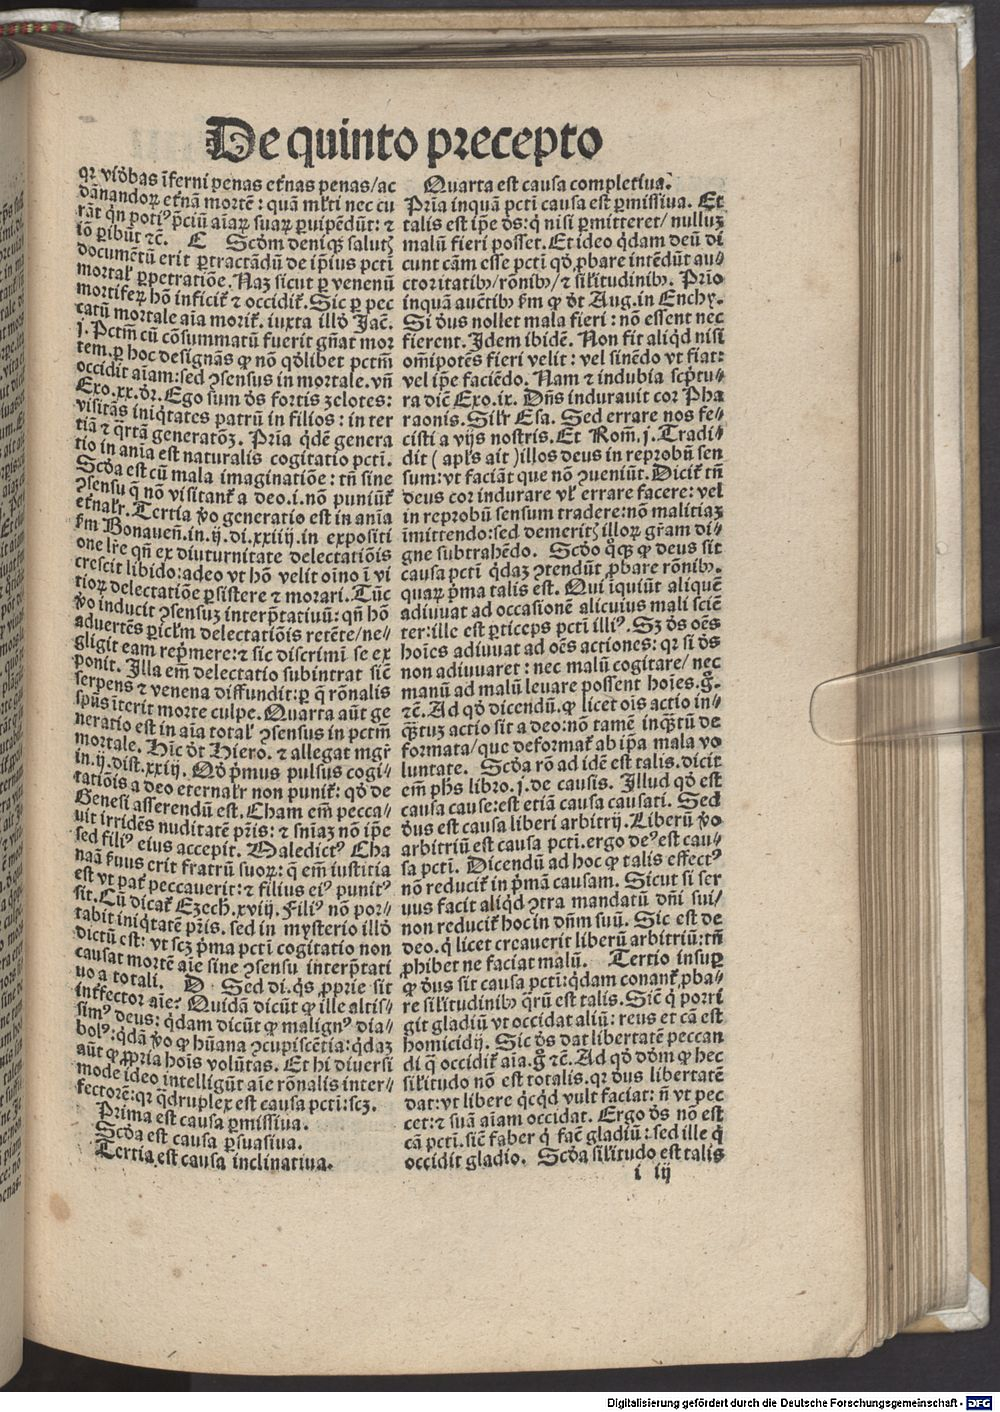 De quinto precepto
qꝛ vidēbas īferni penas et̉nas penas/ac
dānandoꝝ et̉nā mortē: quā ml̉ti nec cu
rāt qn̄ potiꝰ p̄ciū aīaꝝ suaꝝ ꝑuipēdūt: ⁊
iō ꝑibūt ⁊c̄. C Scd̓m deniqꝫ salutꝭ
documētū erit ꝑtractādū de ip̄ius pctī
mortal̓ ꝑpetratiōe. Naꝫ sicut ꝑ venenū
mortiferꝝ hō inficit̉ ⁊ occidit̉. Sic ꝑ pec
catū mortale aīa morit̉. iuxta illd̓ Jac̄.
j. Pctm̄ cū cōsummatū fuerit gn̄at mor
tem. ꝑ hoc designās ꝙ nō qd̓libet pctm̄
occidit aīam: sed ꝯsensus in mortale. vn̄
Exo. xx. dr̄. Ego sum ds̄ fortis zelotes:
visitās iniq̇tates patrū in filios: in ter
tiā ⁊ q̄rtā generatōꝫ. Pria qd̓ē genera
tio in aīa est naturalis cogitatio pctī.
Scd̓a est cū mala imaginatiōe: tn̄ sine
ꝯsensu q̄ nō visitant̉ a deo. i. nō puniūt̉
et̉nalr̄. Tertia v̓o generatio est in aīa
fm̄ Bonauen̄. in. ij. di. xxiiij. in expositi
one lr̄e qn̄ ex diuturnitate delectatiōis
crescit libido: adeo vt hō velit oīno ī vi
tioꝝ delectatiōe ꝑsistere ⁊ morari. Tūc
v̓o inducit ꝯsensuꝫ interp̄tatiuū: qn̄ hō
aduertēs ꝑicl̓m delectatiōis retēte/ne⸗
gligit eam rep̓mere: ⁊ sic discrimī se ex
ponit. Illa em̄ delectatio subintrat sic̄
serpens ⁊ venena diffundit: ꝑ q̄ rōnalis
spūs īterit morte culpe. Quarta aūt ge
neratio est in aīa total̓ ꝯsensus in pctm̄
mortale. Hīc d̓t Hiero. ⁊ allegat mgr̄
in. ij. dist. xxiij. Qd̓ p̓mus pulsus cogi⸗
tatiōis a deo eternalr̄ non punit̉: qd̓ de
Genesi asserendū est. Cham em̄ pecca⸗
uit irridēs nuditatē pr̄is: ⁊ sn̄iaꝫ nō ip̄e
sed filiꝰ eius accepit. Maledictꝰ Cha
naā ẜuus erit fratrū suoꝝ: q̄ em̄ iustitia
est vt pat̉ peccauerit: ⁊ filius eiꝰ punitꝰ
sit. Cū dicat̉ Ezech. xviij. Filiꝰ nō por⸗
tabit iniq̇tatē pr̄is. sed in mysterio illd̓
dictū est: vt scꝫ p̓ma pctī cogitatio non
causat mortē aīe sine ꝯsensu interp̄tati
uo a totali. D Sed di. q̇s ꝓprie sit
inffector aīe? Quidā dicūt ꝙ ille altis⸗
simꝰ deus: q̇dam dicūt ꝙ malignꝰ dia⸗
bolꝰ: q̇dā v̓o ꝙ hūana ꝯcupiscētia: q̇daꝫ
aūt ꝙ ꝓpria hoīs volūtas. Et hi diuersi
mode ideo intelligūt aīe rōnalis inter⸗
fectorē: qꝛ q̄druplex est causa pctī: scꝫ.
Prima est causa ꝑmissiua.
Scd̓a est causa ꝑsuasiua.
Tertia est causa inclinatiua.
Quarta est causa completiua.
Pria inquā pctī causa est ꝑmissiua. Et
talis est ip̄e ds̄: q̇ nisi ꝑmitteret/nulluꝫ
malū fieri posset. Et ideo q̇dam deū di
cunt cām esse pctī qd̓ ꝓbare intēdūt au⸗
ctoritatibꝫ/rōnibꝫ/⁊ sil̓itudinibꝫ. Prio
inquā auc̄tibꝫ fm̄ ꝙ d̓t Aug. in Enchy.
Si d̓us nollet mala fieri: nō essent nec
fierent. Idem ibidē. Non fit aliqd̓ nisi
om̄ipotēs fieri velit: vel sinēdo vt fiat:
vel ip̄e faciēdo. Nam ⁊ indubia scp̄tu⸗
ra dic̄ Exo. ix. Dn̄s indurauit cor Pha
raonis. Silr̄ Esa. Sed errare nos fe⸗
cisti a vijs nostris. Et Rom̄. j. Tradi⸗
dit ( apl̓s ait ) illos deus in reprobū sen
sum: vt faciāt que non ꝯueniūt. Dicit̉ tn̄
deus cor indurare vl̓ errare facere: vel
in reprobū sensum tradere: nō malitiaꝫ
īmittendo: sed demeritꝭ illoꝝ gr̄am di⸗
gne subtrahēdo. Scd̓o q̇qꝫ ꝙ deus sit
causa pctī q̇daꝫ ꝯtendūt ꝓbare rōnibꝫ.
quaꝝ p̓ma talis est. Qui īquiūt aliquē
adiuuat ad occasionē alicuius mali sciē
ter: ille est ꝑticeps pctī illiꝰ. Sꝫ ds̄ oēs
hoīes adiuuat ad oēs actiones: qꝛ si ds̄
non adiuuaret: nec malū cogitare/ nec
manū ad malū leuare possent hoīes. g̊.
⁊c̄. Ad qd̓ dicendū. ꝙ licet oīs actio in⸗
q̄ꝫtuꝫ actio sit a deo: nō tamē inq̄ꝫtū de
formata/que deformat̉ ab ip̄a mala vo
luntate. Scd̓a rō ad idē est talis. dicit
em̄ ph̄s libro. j. de causis. Illud qd̓ est
causa cause: est etiā causa causati. Sed
d̓us est causa liberi arbitrij. Liberū v̓o
arbitriū est causa pctī. ergo deꝰ est cau⸗
sa pctī. Dicendū ad hoc ꝙ talis effectꝰ
nō reducit̉ in p̓mā causam. Sicut si ser
uus facit aliqd̓ ꝯtra mandatū dn̄i sui/
non reducit̉ hoc in dn̄m suū. Sic est de
deo. q̇ licet creauerit liberū arbitriū: tn̄
ꝓhibet ne faciat malū. Tertio insuꝑ
ꝙ d̓us sit causa pctī: q̇dam conant̉ ꝓba⸗
re sil̓itudinibꝫ q̄rū est talis. Sic̄ q̇ porri
git gladiū vt occidat aliū: reus et cā est
homicidij. Sic ds̄ dat libertatē peccan
di q̄ occidit̉ aīa. g̊ ⁊c̄. Ad qd̓ dd̓m ꝙ hec
sil̓itudo nō est totalis. qꝛ d̓us libertatē
dat: vt libere q̇cq̇d vult faciat: n̄ vt pec
cet: ⁊ suā aīam occidat. Ergo ds̄ nō est
cā pctī. sic̄ faber q̇ fac̄ gladiū: sed ille q̇
occidit gladio. Scd̓a sil̓itudo est talis
i iij
Digitalisierung gefördert durch die Deutsche Forschungsgemeinschaft - DFG